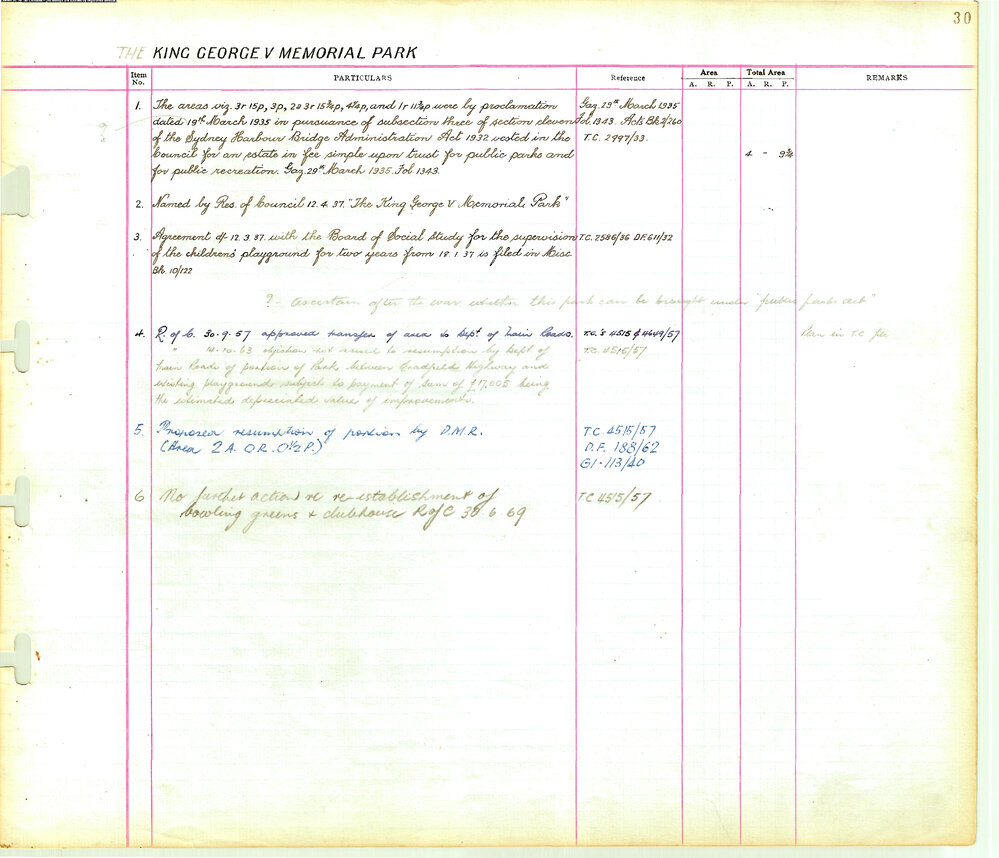 30
THE KING GEORGE V MEMORIAL PARK
Item No. PARTICULARS Reference Area Total Area REMARKS
A. R. P. A. R. P.
1. The areas viz. 3r 15p, 3p, 2a 3r 15¾p, 4¼p, and 1r 11¾p were by proclamation Gaz. 29th March 1935
? dated 19th March 1935 in pursuance of subsection three of section eleven Fol. 1343. Acts Bk 2/260
of the Sydney Harbour Bridge Administration Act 1932 vested in the T.C. 2997/33.
Council for an estate in fee simple upon trust for public parks and 4 - 9¾
for public recreation. Gaz. 29th March 1935. Fol 1343.
2. Named by Res. of Council 12.4.37. "The King George V Memorial Park"
3. Agreement d/- 12.3.37. with the Board of Social Study for the supervision T.C. 2586/36 D.F. 611/32
of the children's playground for two years from 18.1.37 is filed in Misc
Bk. 10/122
? - Ascertain after the war whether this park can be brought under "public parks act"
4. R of C. 30-9-57 approved transfer of area to Dept. of Main Roads. T.C.'s 4515 & 4649/57 Plan in T.C. file
" 14-10-63 objection not raised to resumption by Dept of T.C. 4515/57
Main Roads of portion of Park between Bradfield Highway and
existing playground subject to payment of sum of £17,005 being
the estimated depreciated value of improvements.
5. Proposed resumption of portion by D.M.R. T.C. 4515/57
(Area 2A. 0R. 0½P.) D.F. 188/62
G1-113/40
6 No further action re re-establishment of T.C 4515/57
bowling greens & clubhouse R of C 30 6 69